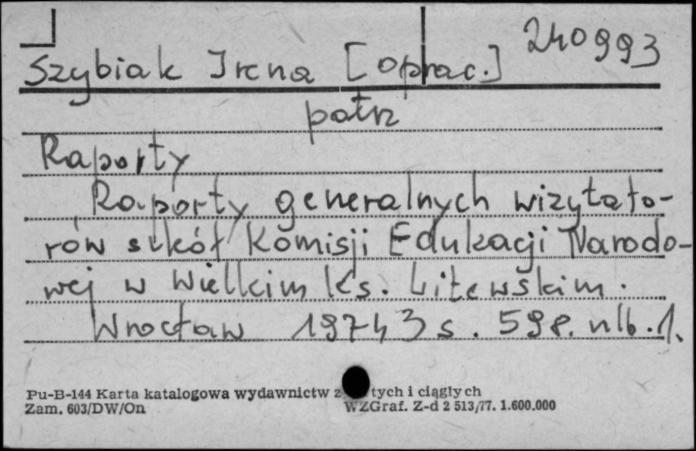 240993
Szybiak Irena [oprac.]
patrz
Raporty
Raporty generalnych wizytato-
rów szkół Komisji Edukacji Narodo-
wej w Wielkim Ks. Litewskim.
Wrocław 1974 3 s. 598. nlb. 1.
Pu-B-144 Karta katalogowa wydawnictw tych i ciągłych
Zam. 603/DW/On WZGraf. Z-d 2 513/77. 1.600.000